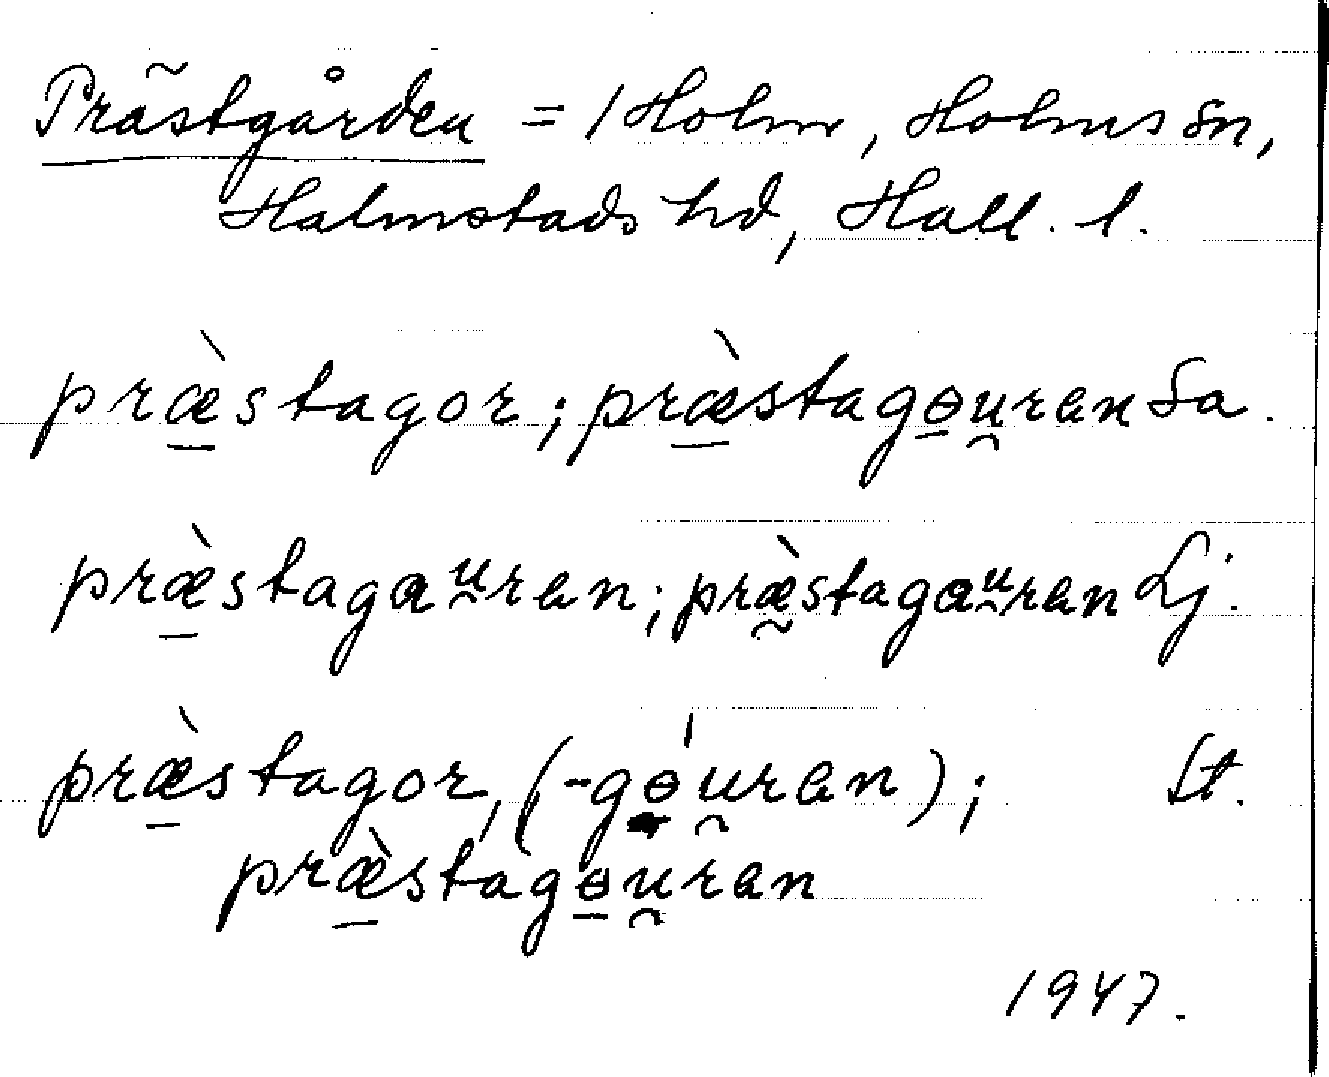 Prästgården = 1 Holm, Holms sn,
Halmstads hd, Hall. l.
præ̠̀stagor; præ̠̀stagɵ̠u̯ran Sa.
præ̠̀stagaᵘ̯ran; præ̰̀stagaᵘ̯ran Lj.
præ̠̀stagor, (-gɵ̠́u̯ran); St.
præ̠̀stagɵ̠u̯ran
1947.